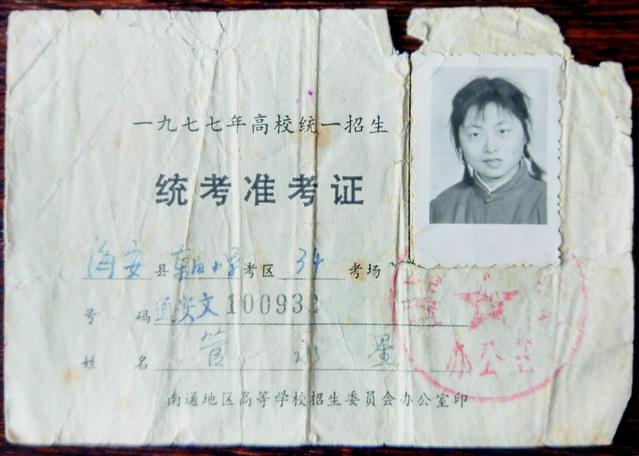 一九七七年高校统一招生
统考准考证
海安县 小学考区 34 考场
号码 通安文 100932
姓名 管
南通地区高等学校招生委员会办公室印
办公室